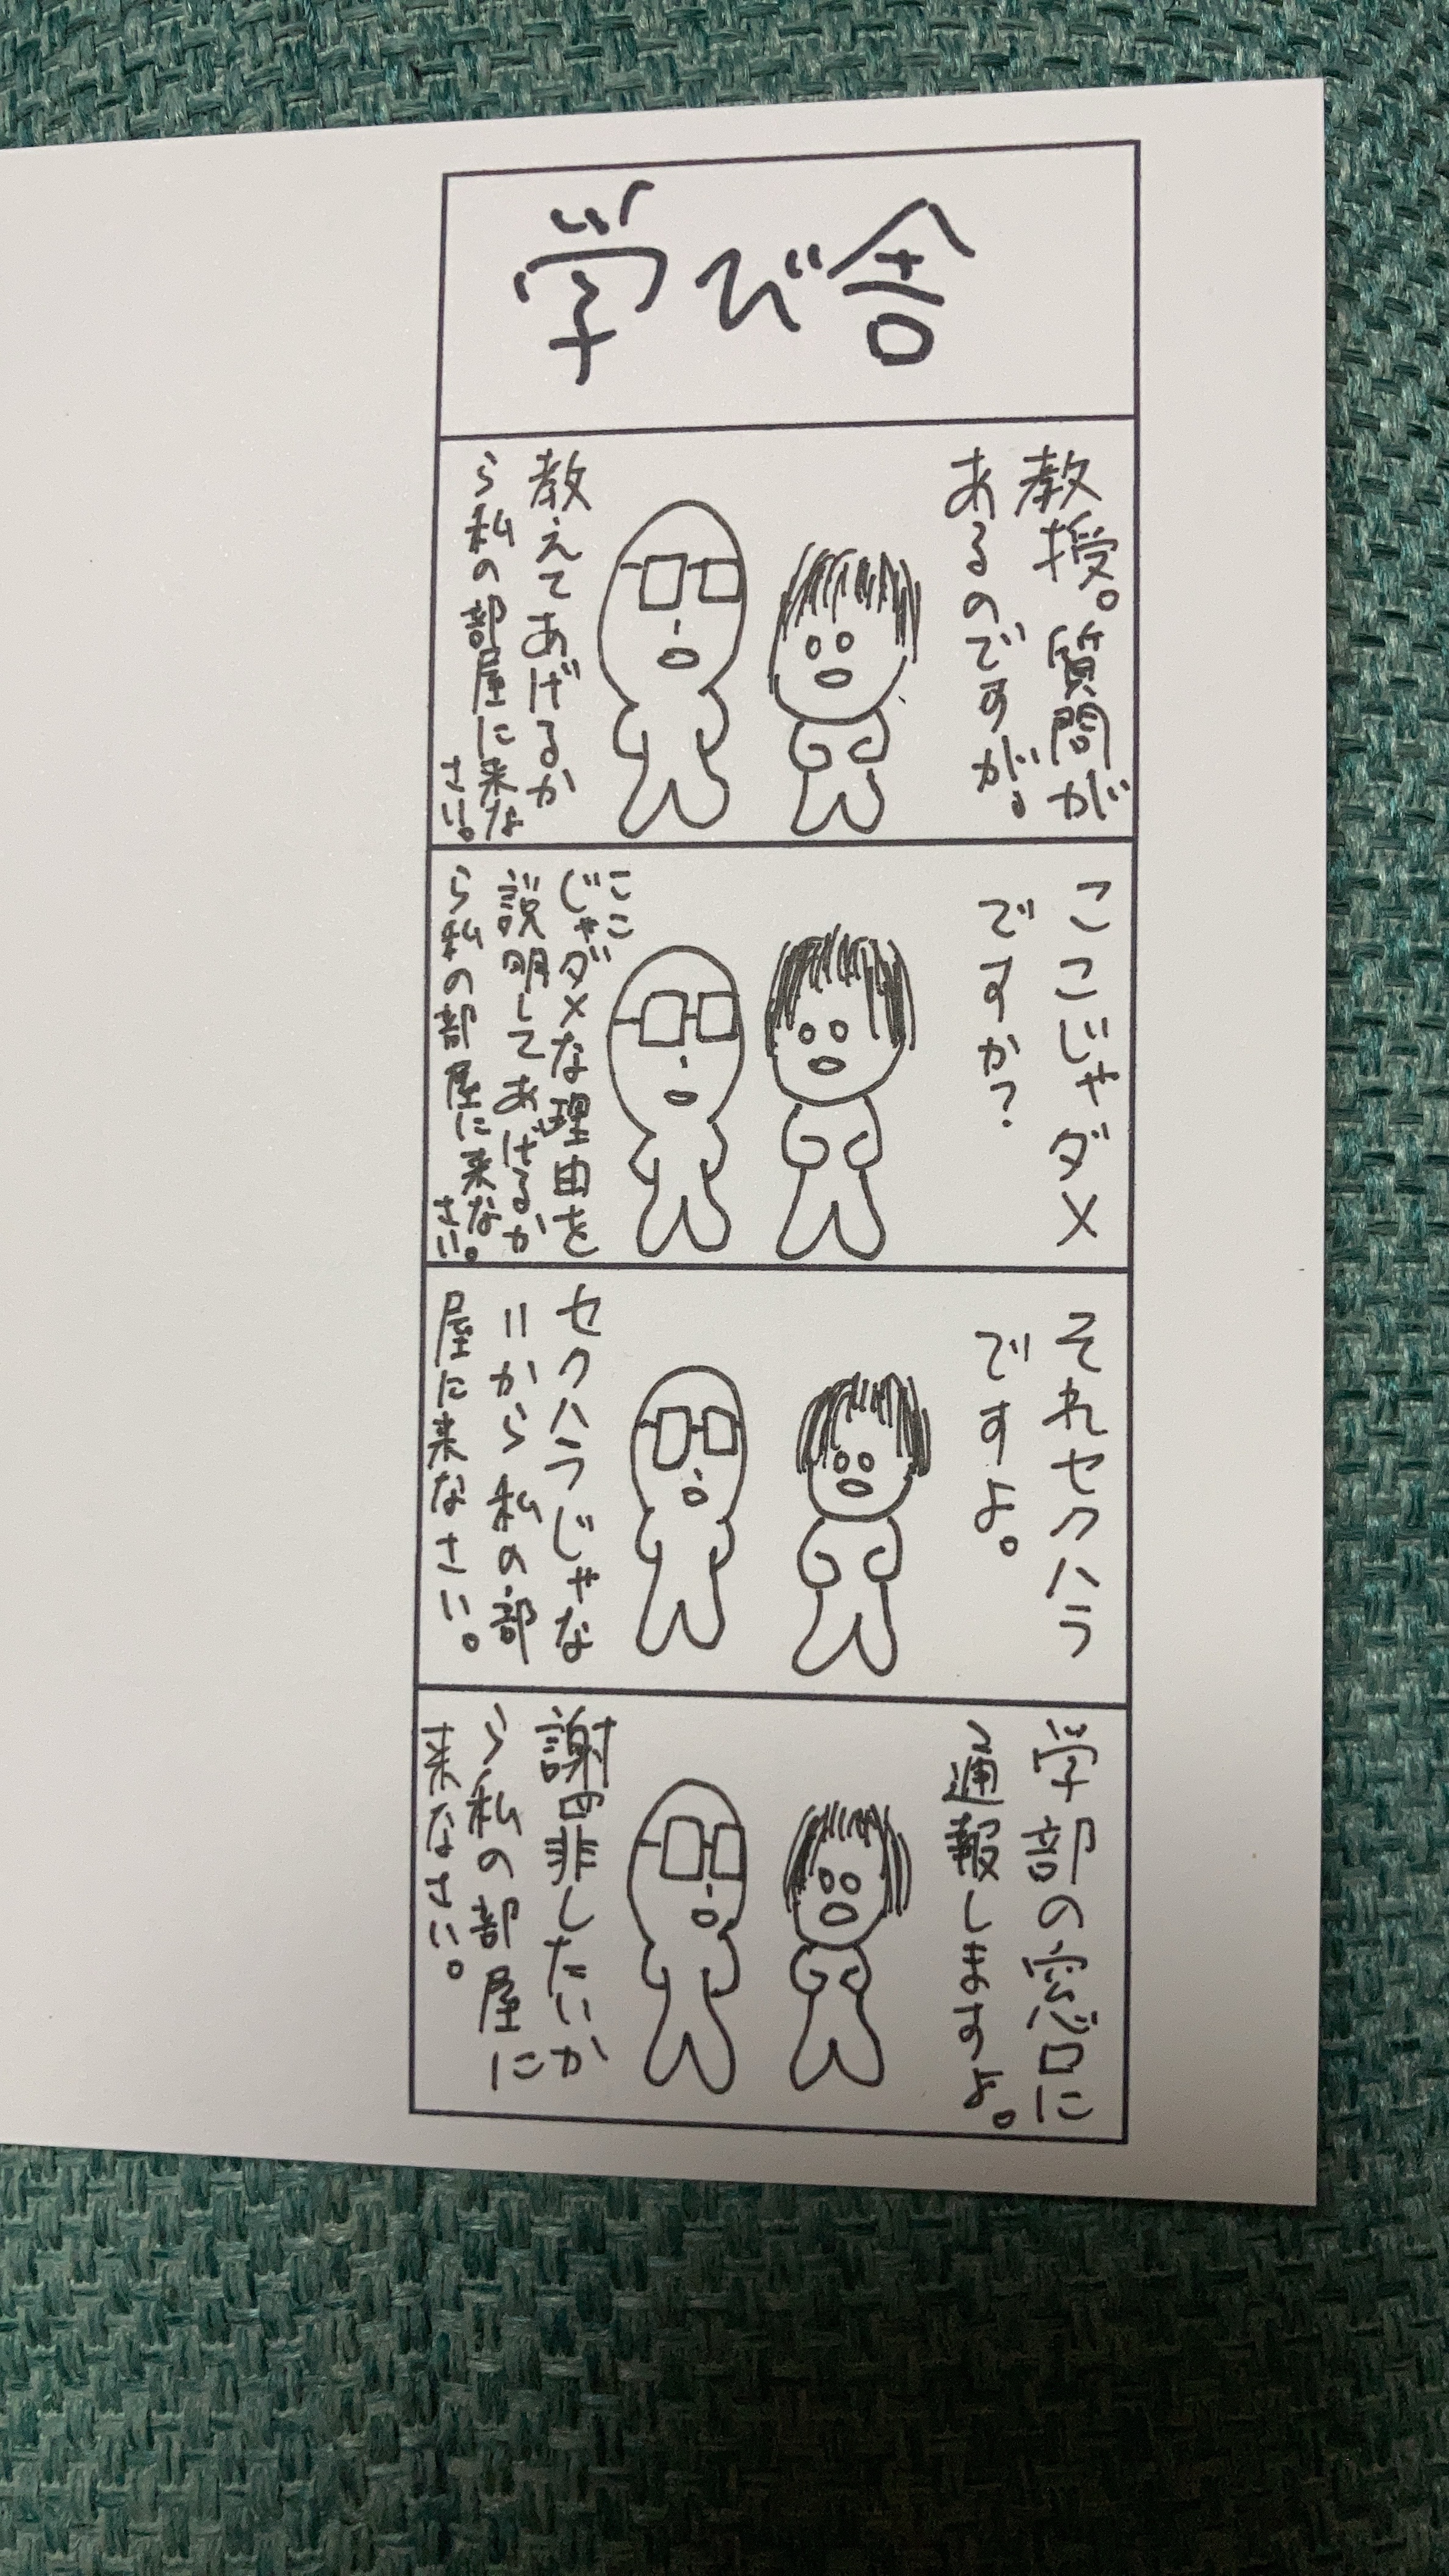 学び舎
教授。質問が
あるのですが。
教えてあげるか
ら私の部屋に来な
さい。
ここじゃダメ
ですか?
ここ
じゃダメな理由を
説明してあげるか
ら私の部屋に来な
さい。
それセクハラ
ですよ。
セクハラじゃな
いから私の部
屋に来なさい。
学部の窓口に
通報しますよ。
謝罪したいか
ら私の部屋に
来なさい。